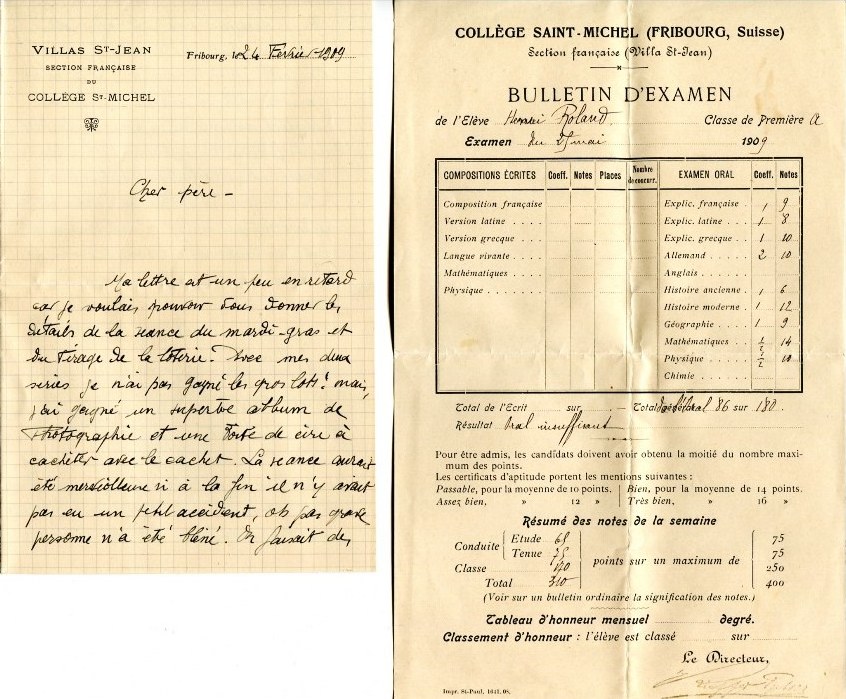 VILLAS ST-JEAN
SECTION FRANÇAISE
DU
COLLÈGE ST-MICHEL
Fribourg, le 24 Février 1909
Cher père -
Ma lettre est un peu en retard
car je voulais pouvoir vous donner les
détails de la séance du mardi-gras et
du tirage de la loterie. Avec mes deux
séries je n'ai pas gagné les gros lots! mais
j'ai gagné un superbe album de
photographie et une boîte de cire à
cacheter avec le cachet. La séance aurait
été merveilleuse si à la fin il n'y avait
pas eu un petit accident, oh pas grave
personne n'a été blessé. On faisait des
COLLÈGE SAINT-MICHEL (FRIBOURG, Suisse)
Section française (Villa St-Jean)
BULLETIN D'EXAMEN
de l'Elève Henri Roland Classe de Première A
Examen du mai 1909
COMPOSITIONS ÉCRITES Coeff. Notes Places Nombre de concurr. EXAMEN ORAL Coeff. Notes
Composition française Explic. française . 1 9
Version latine . . . . Explic. latine . . 1 8
Version grecque . . . Explic. grecque . . 1 10
Langue vivante . . . . Allemand . . . . 2 10
Mathématiques . . . . Anglais . . . . .
Physique . . . . . Histoire ancienne . 1 6
Histoire moderne . 1 12
Géographie . . . . 1 9
Mathématiques . . 1/2 14
Physique . . . . 1/2 10
Chimie . . . . .
Total de l'Ecrit sur . - Total général oral 86 sur 180.
Résultat Oral insuffisant
Pour être admis, les candidats doivent avoir obtenu la moitié du nombre maxi-
mum des points.
Les certificats d'aptitude portent les mentions suivantes :
Passable, pour la moyenne de 10 points. Bien, pour la moyenne de 14 points.
Assez bien, » 12 » Très bien, » 16 »
Résumé des notes de la semaine
Conduite Etude 68 75
Tenue 75
Classe points sur un maximum de 250
Total 310 400
(Voir sur un bulletin ordinaire la signification des notes.)
Tableau d'honneur mensuel degré.
Classement d'honneur : l'élève est classé sur
Le Directeur,
Impr. St-Paul, 1647, 08.